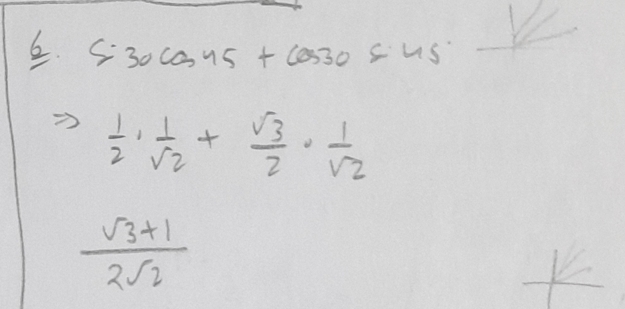 6. Si 30 cos 45 + cos 30 s 45
⇒ 1/2 · 1/√2 + √3/2 · 1/√2
(√3+1)/(2√2)